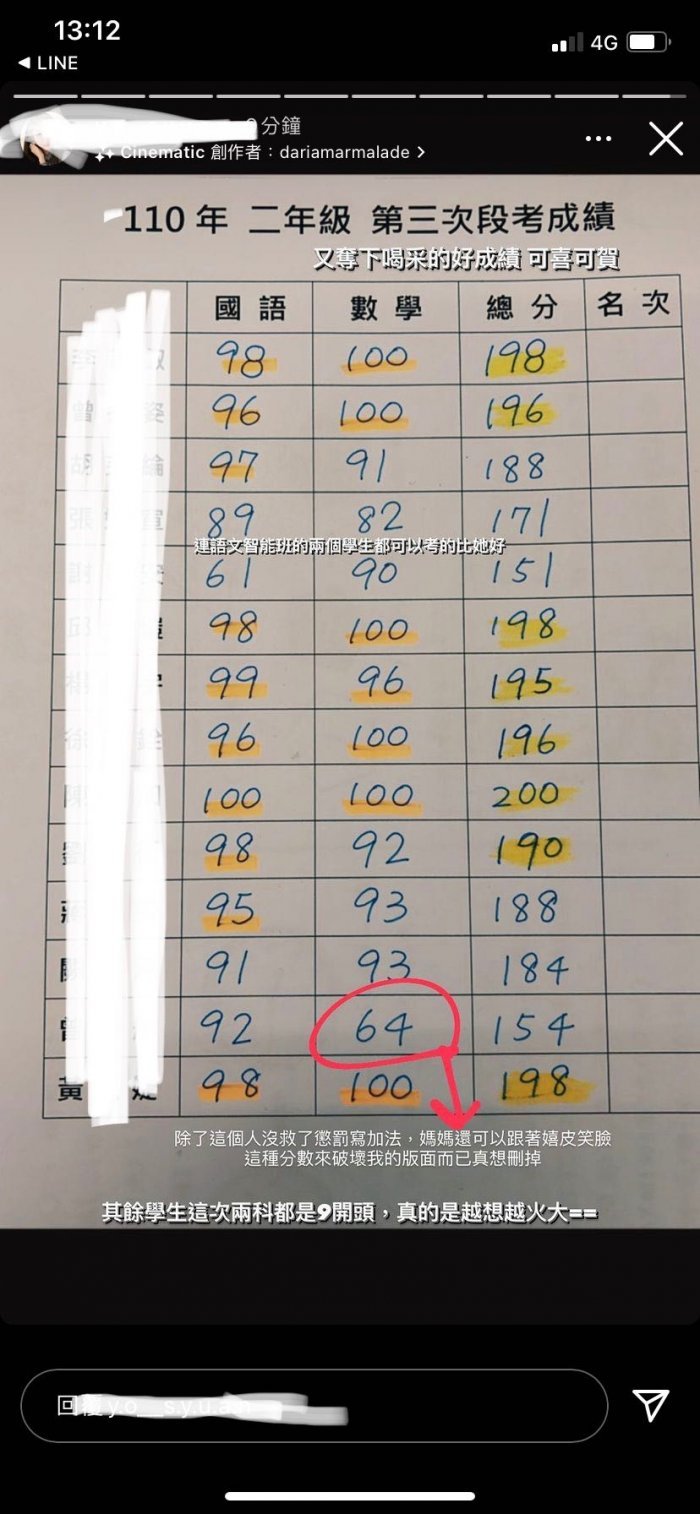 13:12
4G
◀ LINE
分鐘
Cinematic 創作者：dariamarmalade >
110 年 二年級 第三次段考成績
又奪下喝采的好成績 可喜可賀
國語 數學 總分 名次
98 100 198
曾 姿 96 100 196
胡 綸 97 91 188
張 宣 89 82 171
連語文智能班的兩個學生都可以考的比她好
謝 安 61 90 151
邱 98 100 198
楊 宇 99 96 195
徐 銓 96 100 196
陳 100 100 200
劉 98 92 190
蔣 95 93 188
關 91 93 184
曾 92 64 154
黃 98 100 198
除了這個人沒救了懲罰寫加法，媽媽還可以跟著嬉皮笑臉
這種分數來破壞我的版面而已真想刪掉
其餘學生這次兩科都是9開頭，真的是越想越火大==
回覆